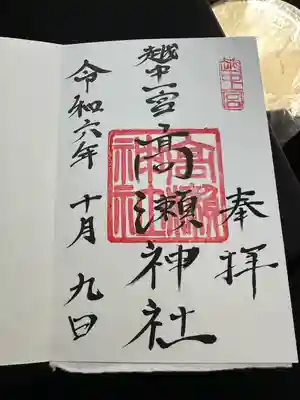 奉拝
越中一宮
高瀬神社
高瀬神社
越中一宮
令和六年 十月 九日